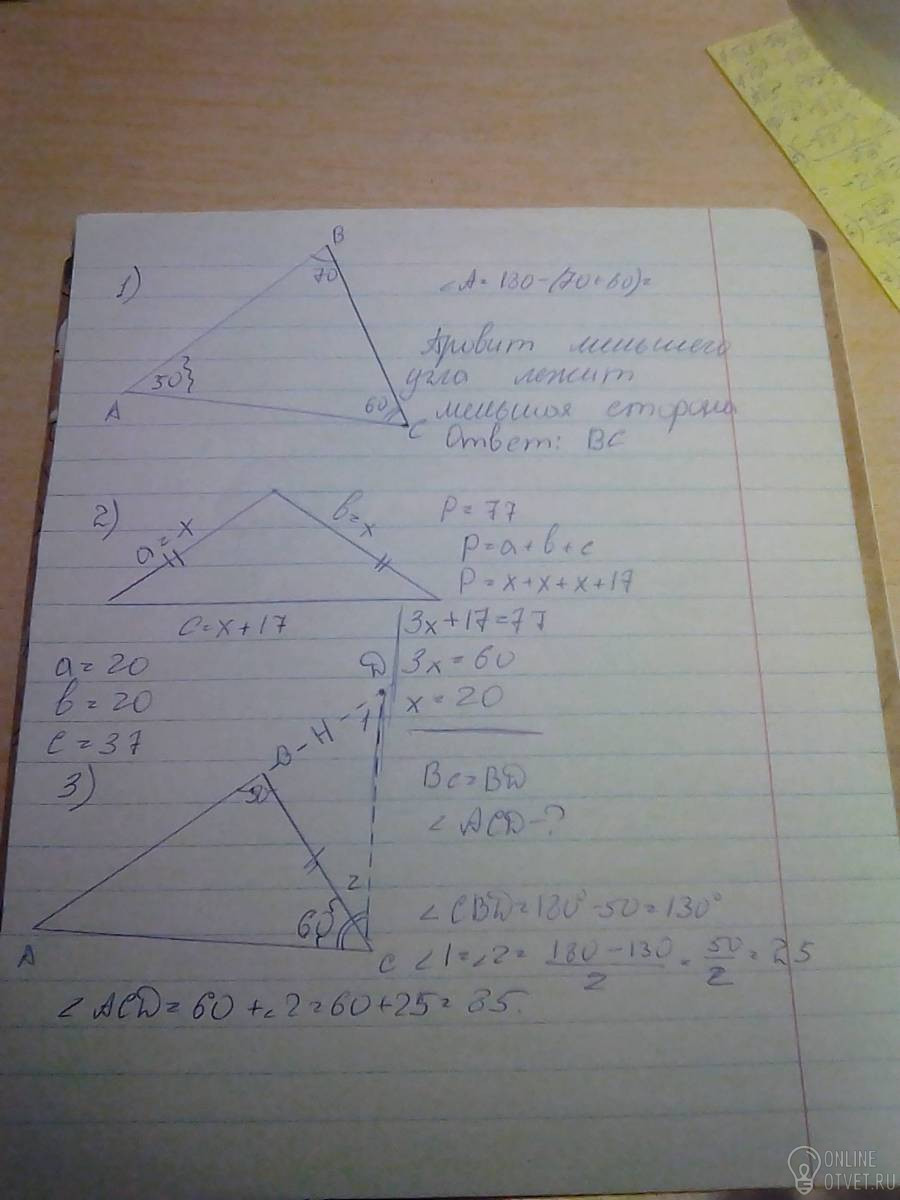 1)
B
70
50
A
60
C
∠A = 180-(70+60)=
Против меньшего
угла лежит
меньшая сторона
Ответ: BC
2)
a=x
b=x
c=x+17
P=77
P=a+b+c
P=x+x+x+17
3x+17=77
3x=60
x=20
a=20
b=20
c=37
3)
D
1
B
50
2
60
A
C
BC=BD
∠ACD-?
∠CBD=180°-50=130°
∠1=∠2= 180-130/2 = 50/2 = 25
∠ACD=60+∠2=60+25=85.
ONLINE
OTVET.RU